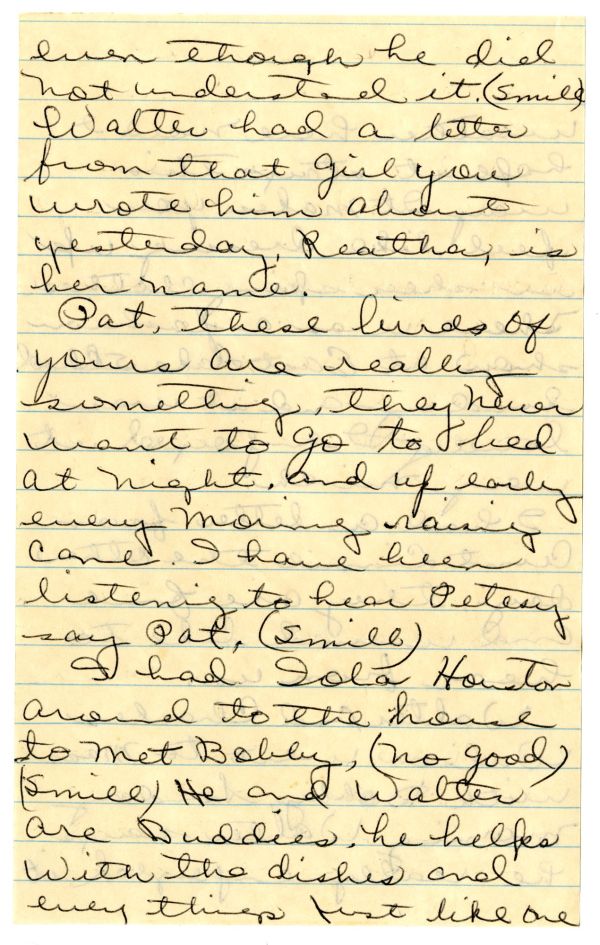 even though he did
not understand it. (Smile)
Walter had a letter
from that girl you
wrote him about
yesterday, Reatha, is
her name.
Pat, these birds of
yours are really
something, they never
want to go to bed
at night, and up early
every morning raising
cane. I have been
listenig to hear Petesy
say Pat, (Smile)
I had Iola Houston
around to the house
to met Bobby, (no good)
(Smile) He and Walter
are Buddies. he helps
with the dishes and
every things just like one